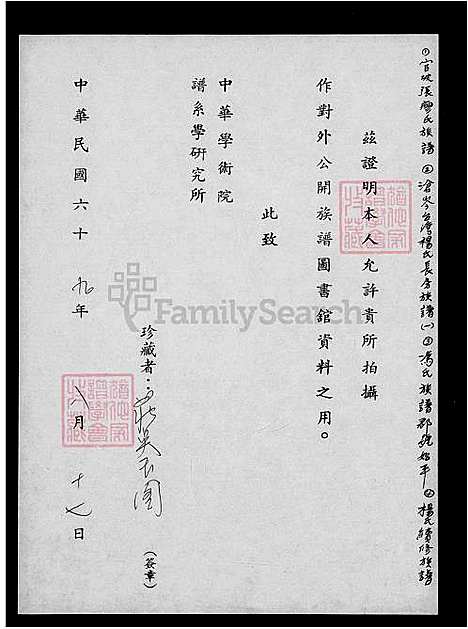 ①官坡張廖氏族譜 ②滄岑台灣楊氏長房族譜(一) ③馮氏族譜 郡號始平 ④楊氏續修族譜
茲證明本人允許貴所拍攝
作對外公開族譜圖書館資料之用。
此致
中華學術院
譜系學研究所
珍藏者:莊吳玉圖
(簽章)
中華民國六十九年八月十七日
FamilySearch